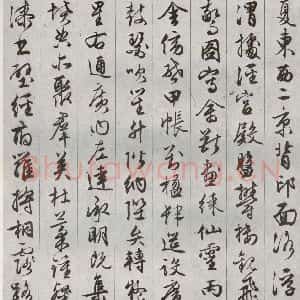 夏東西二京背邙面洛浮
渭據涇宮殿盤鬱樓觀飛
驚圖寫禽獸畫綵仙靈丙
舍傍啟甲帳對楹肆筵設席
鼓瑟吹笙升階納陛弁轉疑
星右通廣內左達承明既集
墳典亦聚羣英杜藁鍾隸
漆書壁經府羅將相路
Shufawang.CN